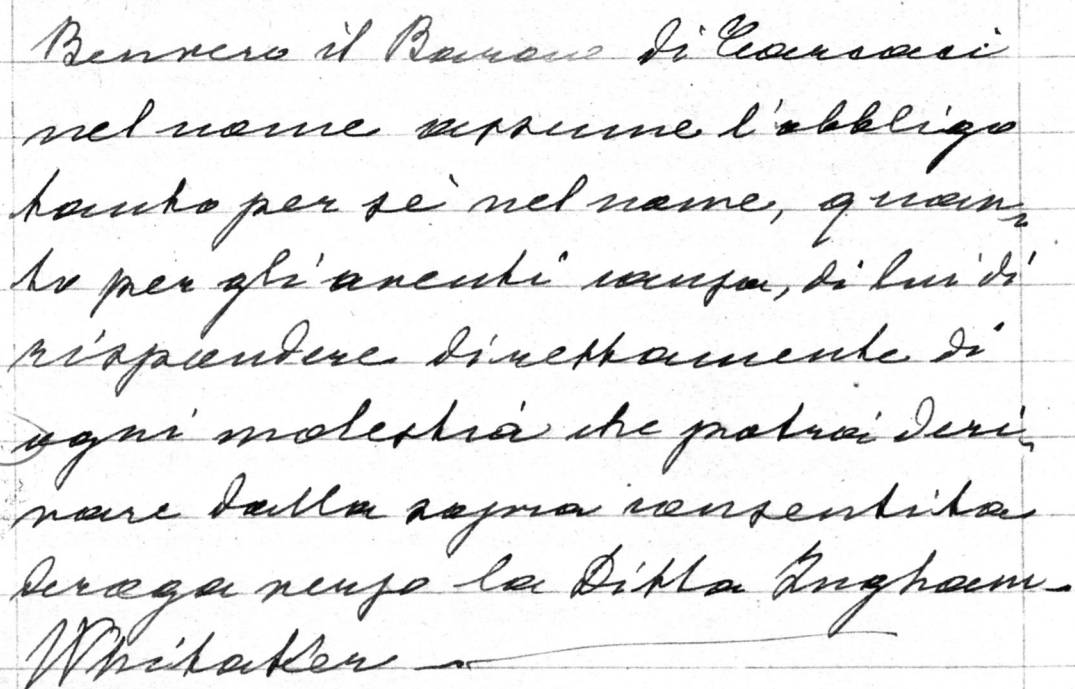 Benvero il Barone di Carcaci
nel nome assume l'obbligo
tanto per sè nel nome, quan=
to per gli aventi causa, di lui di
rispondere direttamente di
ogni molestia che potrà deri=
vare dalla sopra consentita
deroga verso la Ditta Ingham-
Whitaker —